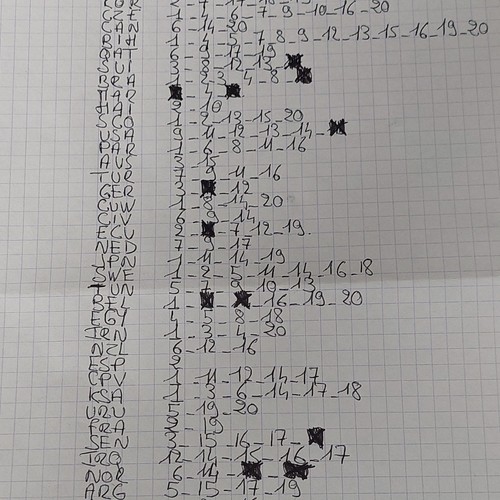 CZE 1_4_6_7_9_10_16_20
CAN 6_14_20
BIH 1_4_5_7_8_9_12_13_15_16_19_20
QAT 6_9_17_19
SUI 6_8_12_13_
BRA 4_8_
MAR _4_
HAI 2_10
SCO 1_2_13_15_20
USA 9_11_12_13_14_
PAR 1_6_8_11_16
AUS 3_15
TUR 7_9_11_16
GER 3_ _12
CUW 1_8_14_20
CIV 6_14
ECU 2_ _7_12_19.
NED 7_9_17
JPN 1_11_14_19
SWE 1_2_5_11_14_16_18
TUN 5_7_9_10_13
BEL 1_ _ _16_19_20
EGY 4_5_8_18
IRN 1_3_4_20
NZL 6_12_16
ESP 2
CPV 1_11_12_14_17
KSA 1_3_6_14_17_18
URU 5_19_20
FRA 9_19
SEN 3_15_16_17_
IRQ 12_14_15_16_17
NOR 6_14_ _
ARG 5_15_17_19